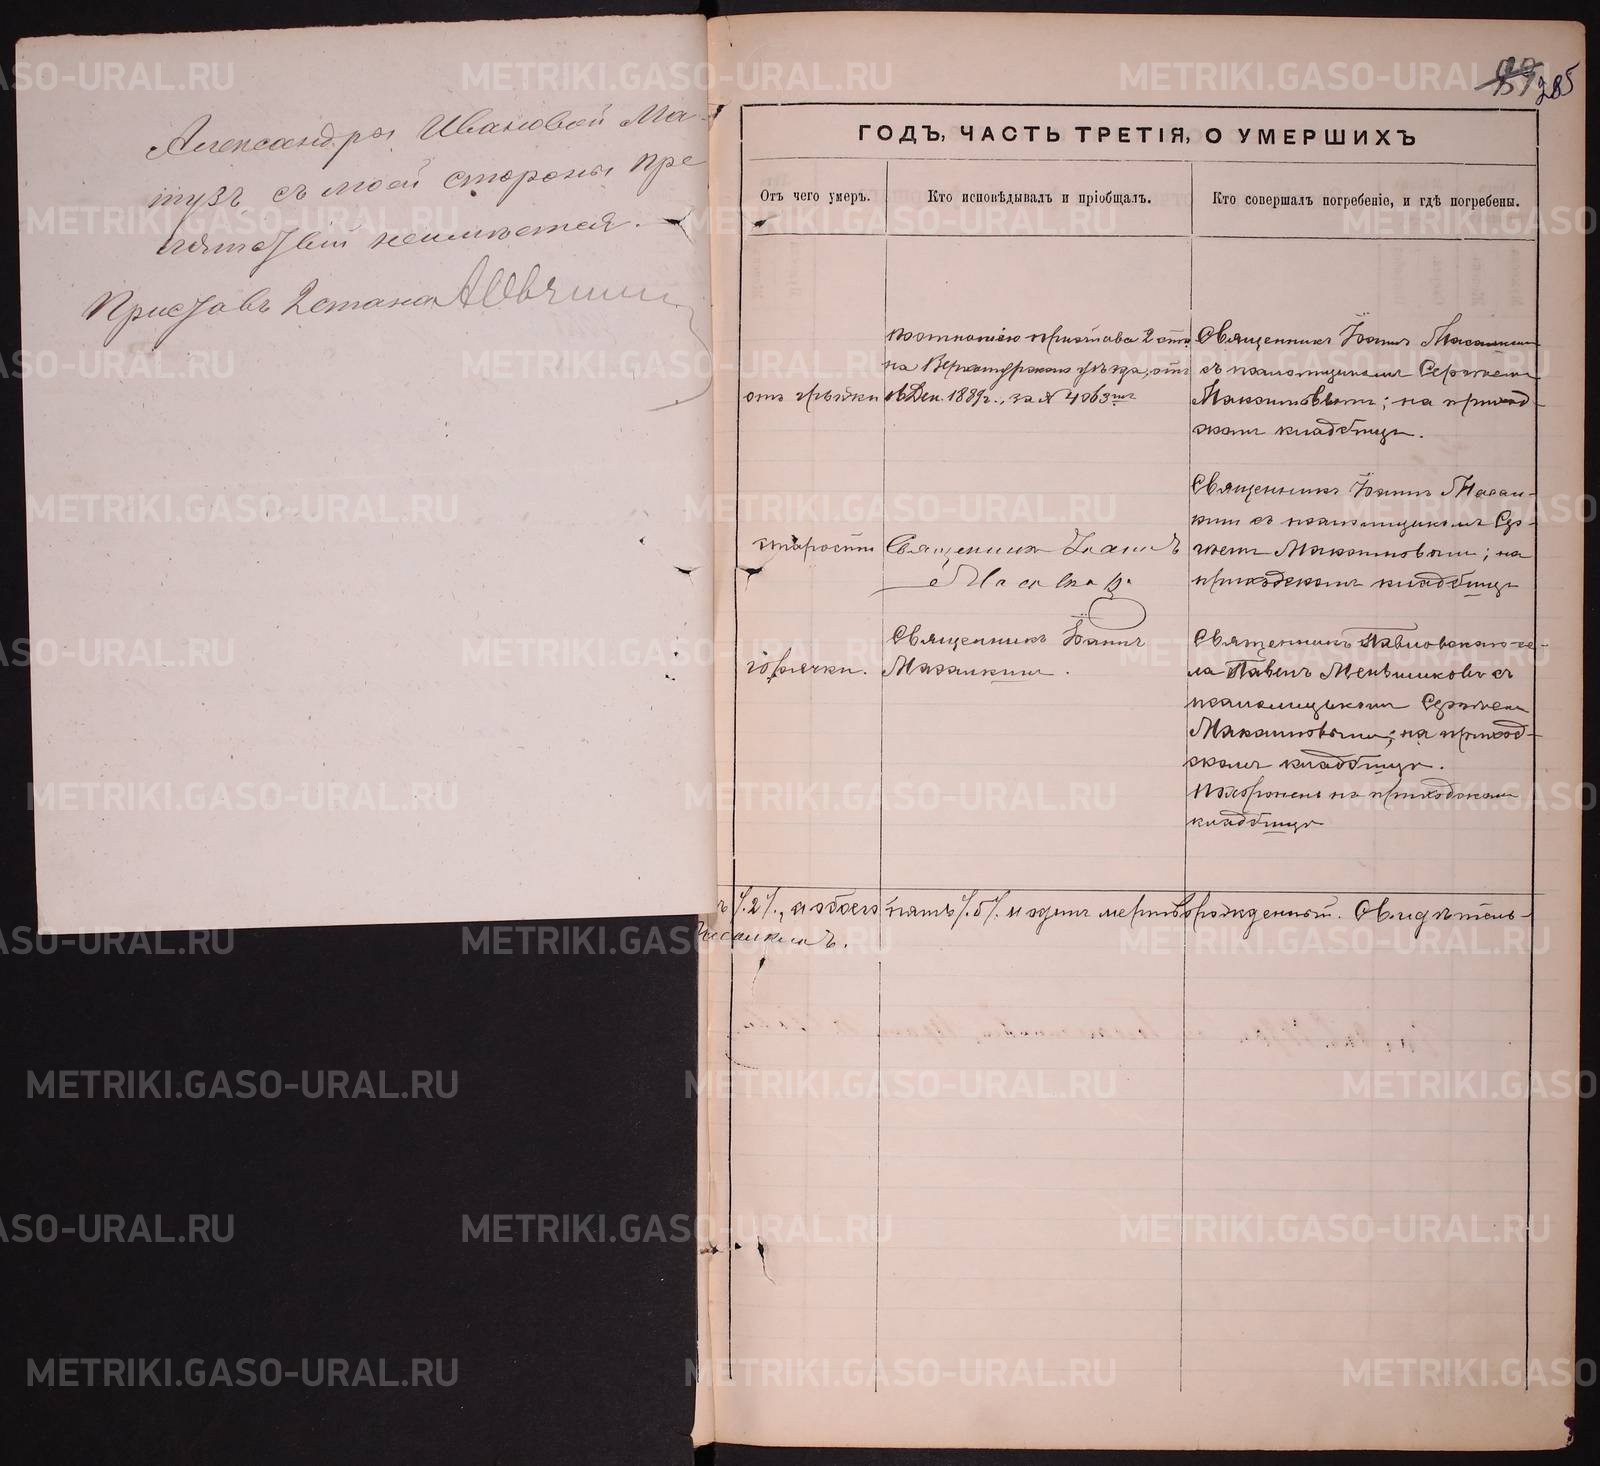 Александры Ивановой Ма-
тузъ съ моей стороны пре
пятствій неимѣется.
Приставъ 2 стана
285
ГОДЪ, ЧАСТЬ ТРЕТІЯ, О УМЕРШИХЪ
Отъ чего умеръ.
Кто исповѣдывалъ и пріобщалъ.
Кто совершалъ погребеніе, и гдѣ погребены.
отъ грыжи
по отношенію пристава 2 ста
на Верхотурскаго уѣзда, отъ
Дек. 1889 г., за № 4063
Священникъ Іоаннъ
съ псаломщикомъ Сергѣемъ
Максимовымъ; на приход-
скомъ кладбищѣ.
старости
Священникъ Іоаннъ
Священникъ Іоаннъ
съ псаломщикомъ Сер-
гѣемъ Максимовымъ; на
приходскомъ кладбищѣ
горячки.
Священникъ Іоаннъ
Священникъ Павловскаго се-
ла Павелъ Меньшиковъ съ
псаломщикомъ Сергѣемъ
Максимовымъ; на приход-
скомъ кладбищѣ.
Похороненъ на приходскомъ
кладбищѣ
ъ /.2/., а обоего пять /.5/. и одинъ мертворожденный. Свидѣтель-
METRIKI.GASO-URAL.RU